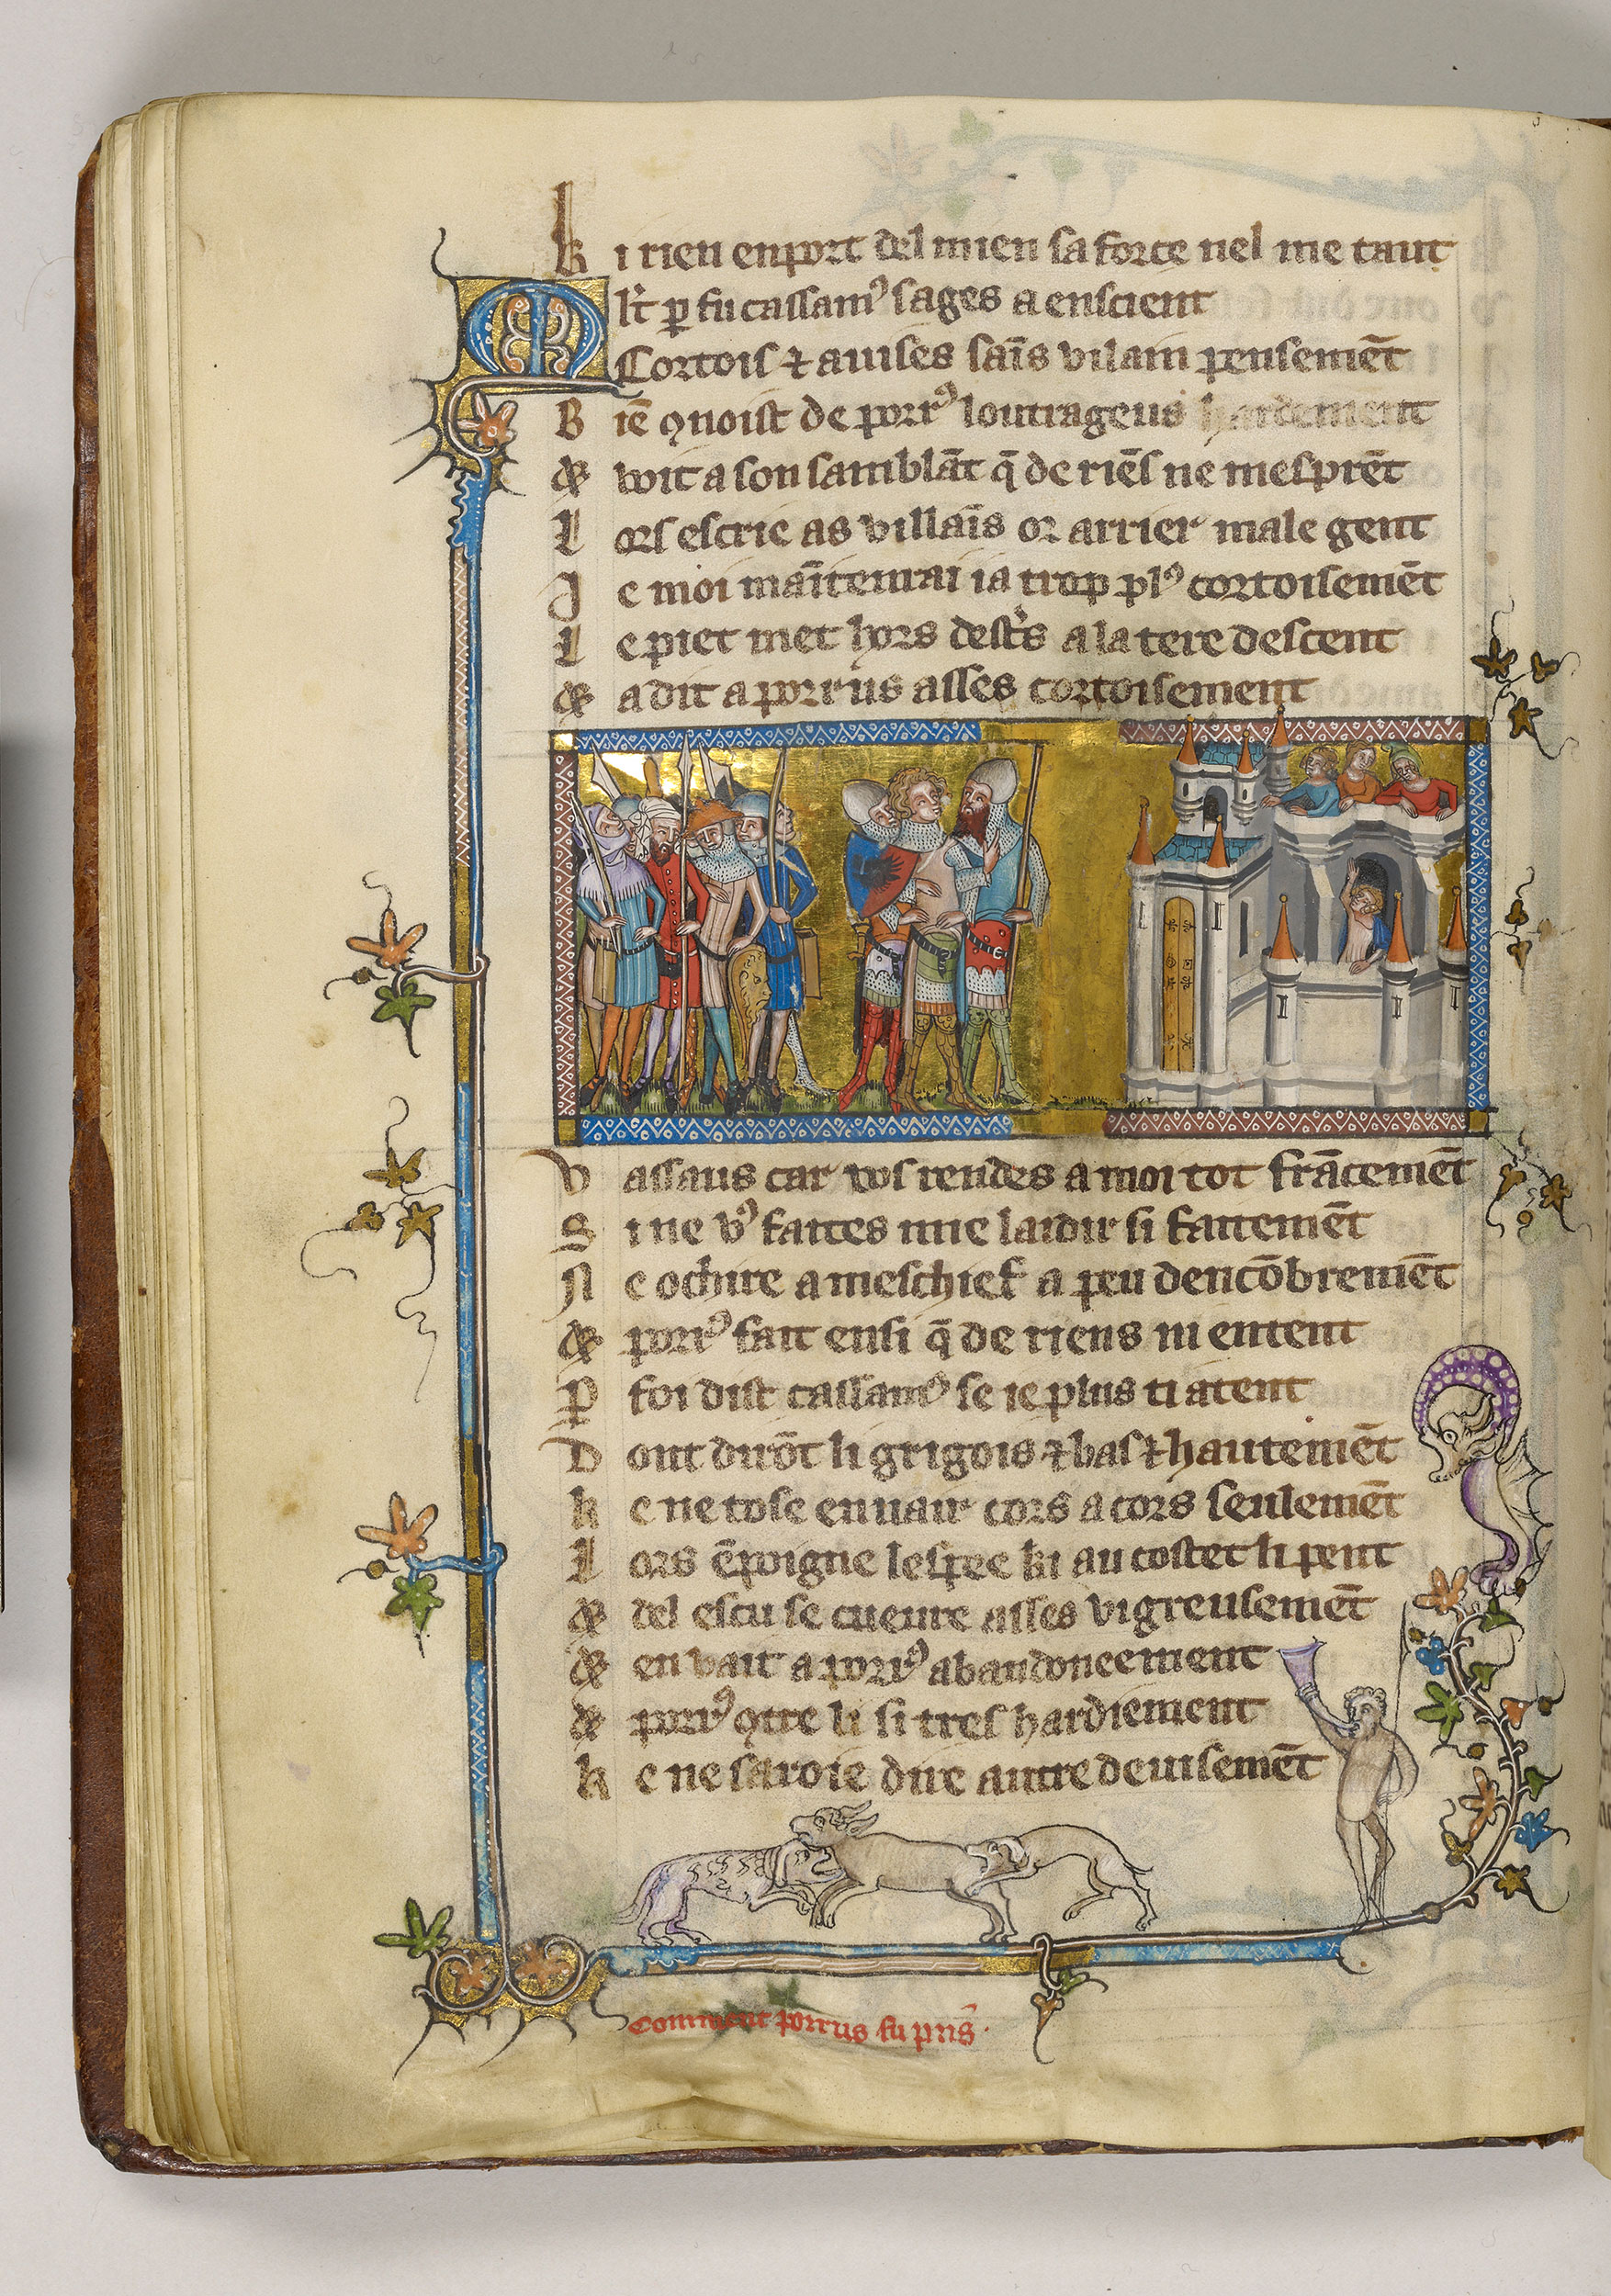 Ki rien enport del mien sa force nel me taut
Ml't p̱ fu cassamꝰ sages a enscient
Cortois ⁊ auises sais̄ vilain pensemēt
Biē ꝯnoist de porrꝰ loutrageus hardement
& voit a son samblāt q̄ de riēs ne mesprēt
Lors escrie as villaīs or arrier male gent
Je moi maīntenrai ia trop plꝰ cortoisemēt
Le piet met hors destˢs a la tere descent
& a dit a porrus asses cortoisement
Vassaus car vos rendes a moi tot frācemēt
Si ne vꝰ faites mie laidir si faitemēt
Ne ochire a meschief a peu dencōbremēt
& porrꝰ fait ensi q̄ de riens ni entent
P̱ foi dist cassamꝰ se ie plus ti atent
Dont dirōt li grigois ⁊ bas ⁊ hautemēt
Ke ne tose enuair cors a cors seulemēt
Lors ēpoigne lespee ki au costet li pent
& del escu se cueure asses vigreusemēt
& en vait a porrꝰ abandoneement
& porrꝰ ꝯtre li si tres hardiement
Ke ne saroie dire autre deuisemēt
Comment porrus fu pris̄.